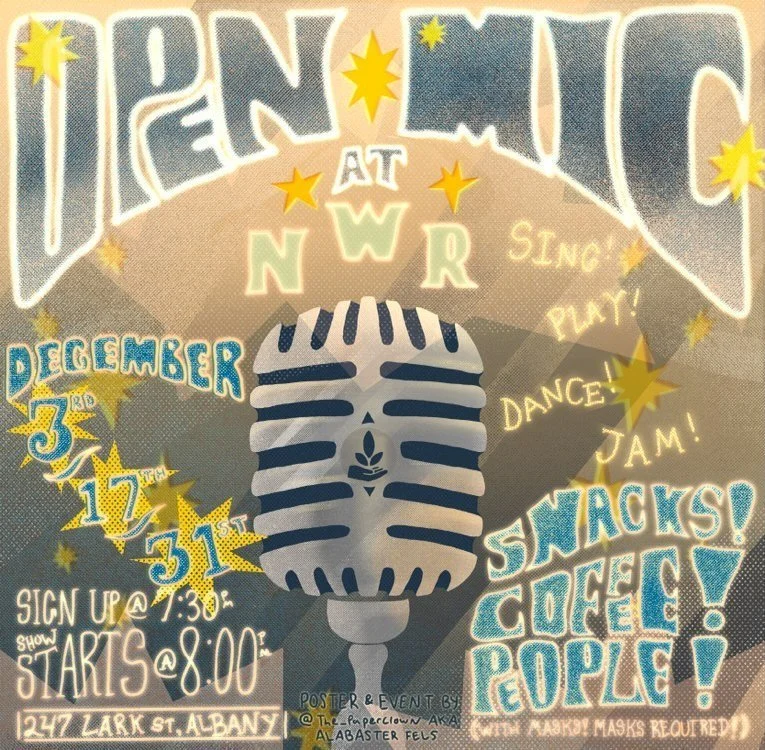 OPEN MIC
AT
NWR
SING!
PLAY!
DANCE!
JAM!
DECEMBER
3RD
17TH
31ST
SNACKS!
COFFEE!
PEOPLE!
(WITH MASKS! MASKS REQUIRED!)
SIGN UP @ 7:30
SHOW STARTS @ 8:00PM
247 LARK ST, ALBANY
POSTER & EVENT BY
@The_Paperclown AKA
ALABASTER FELS